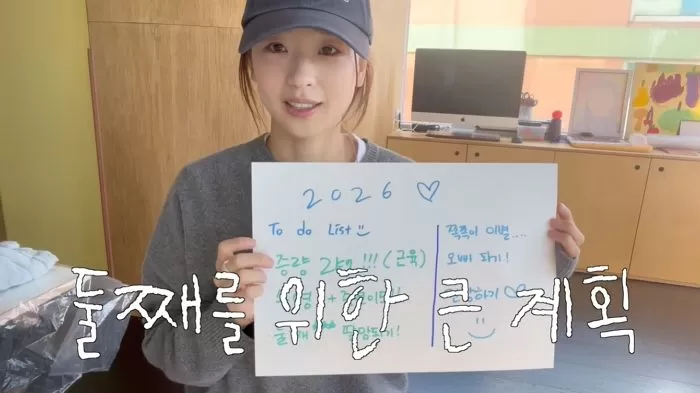 2026 ♡
To do List
증량 2kg !!! (근육)
쪽쪽이 이별....
오빠 되기!
하기 ♡
둘째를 위한 큰 계획